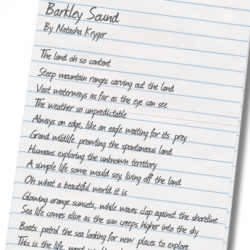 Barkley Sound
By Natasha Kryger
The land oh so content
Steep mountain ranges carving out the land
Vast waterways as far as the eye can see
The weather so unpredictable
Always on edge, like an eagle waiting for its prey
Grand wildlife, prowling the spacious land
Humans exploring the unknown territory
A simple life some would say, living off the land
Oh what a beautiful world it is
Glowing orange sunsets, while waves clap against the shoreline
Sea life comes alive as the sun creeps higher into the sky
Boats, patrol the sea looking for new places to explore
This is the life,